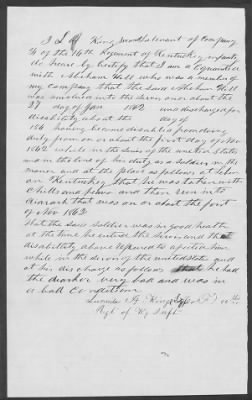 I L R King Second Lieutenant of Company
G of the 16th Regiment of Kentucky infantry
do hearby Certify that I am acquainted
with Abraham Hall who was a member of
my company that the said Abraham Hall
was enrolled into the Servis on or about the
27 day of Jan 1862 and discharged for
disability about the day of
186 having become disabled from doing
duty from on or about the first day of Nov
1862 while in the Servis of the united States
and in the line of his duty as a Soldier in the
manner and at the place as follows at Leban
on Kentucky that he was taken with
Chills and fever and then run into
diarreah that was on or about the first
of Nov 1862
that the said Soldier was in good health
at the time he entered the Servis and the
disability above refered to afected him
while in the Servis of the united States and
at his discharge as follows he had
the diarhea very bad and was in
a bad Condition
King 16th
Rgt of Ky Inft